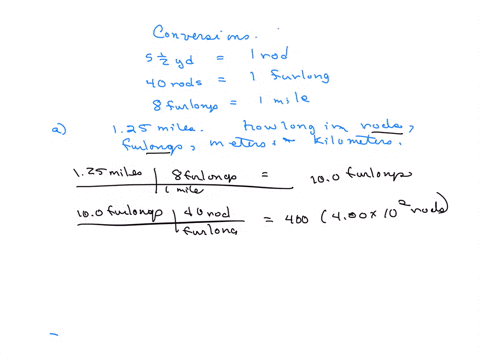 Conversions.
5 1/2 yd = 1 rod
40 rods = 1 furlong
8 furlongs = 1 mile
a) 1.25 miles. How long in rods,
furlongs, meters, kilometers.
1.25 miles | 8 furlongs = 10.0 furlongs
1 mile
10.0 furlongs | 40 rod = 400 (4.00 × 10² rods)
furlong